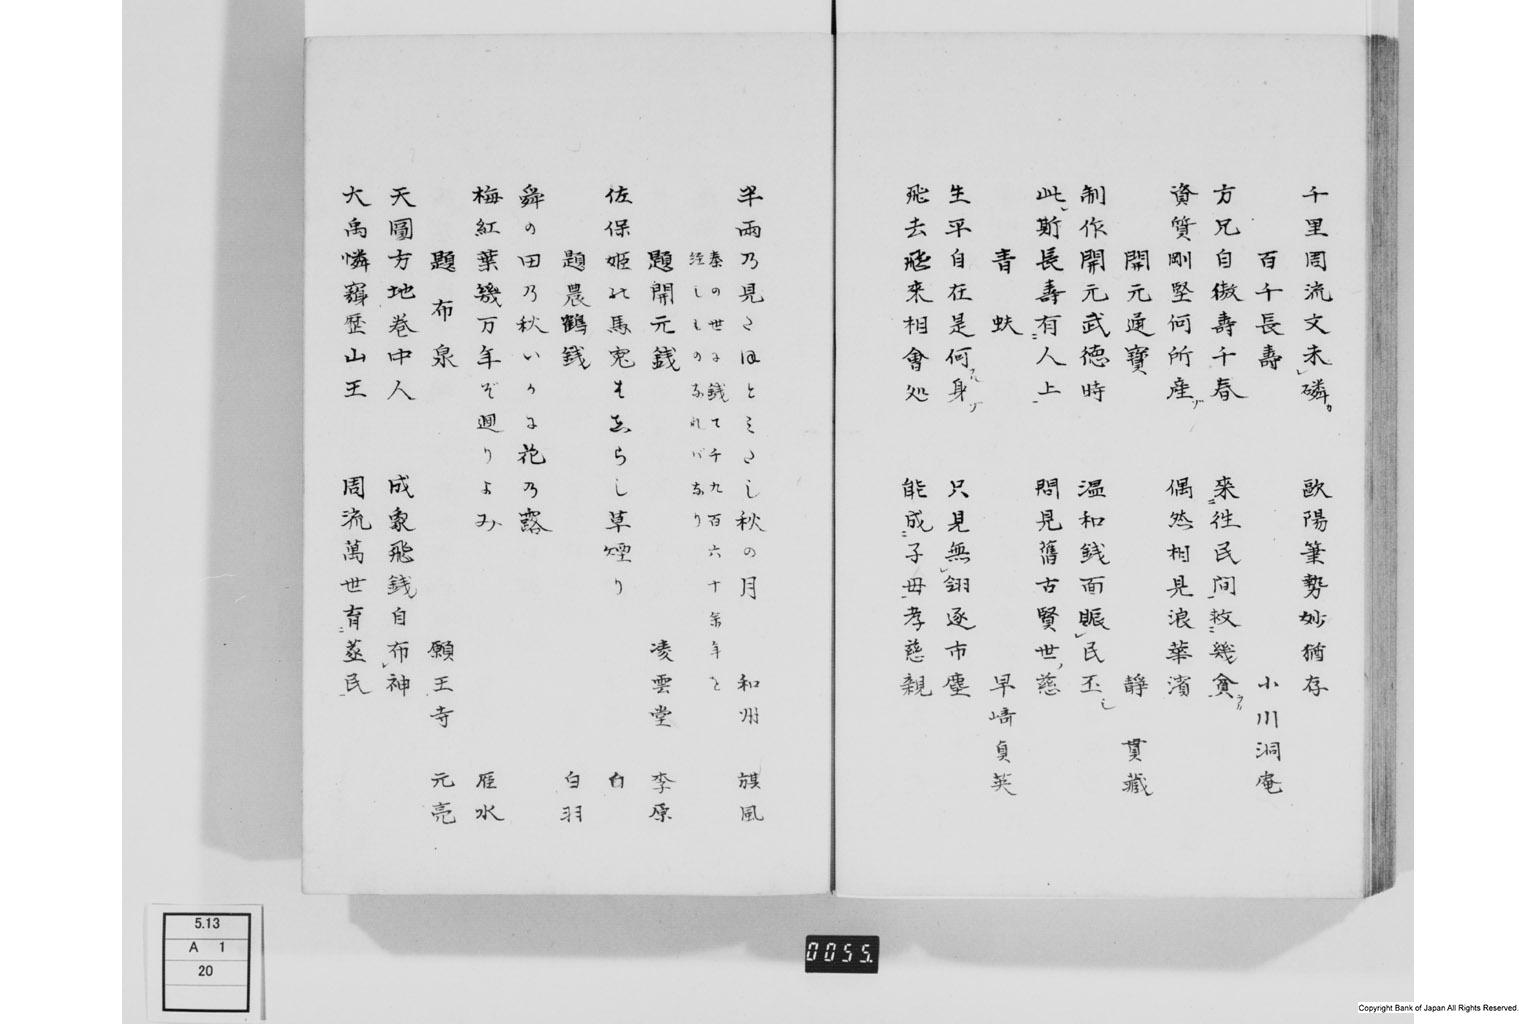 千里周流文未磷　歐陽筆勢妙猶存
百千長壽　小川洞庵
方兄自傲壽千春　来往民间救幾貪
資質剛堅何所産　偶然相見浪華濱
開元通寶　靜貫藏
制作開元武徳時　温和銭面賑民丕
此斯長壽有人上　問見舊古賢世慈
青蚨　早﨑貞英
生平自在是何身　只見無翎逐市塵
飛去飛来相會処　能成子母孝慈親
半兩乃見
とミ
し秋の月　和州　旗風
秦の世に銭て千九百六十余年を
経しものなれバなり
題開元銭　凌雲堂　李原
佐保姫
馬
し草煙り　白
題農鶴銭　白羽
舜の田乃秋いかに花乃露
梅紅葉幾万年ぞ廻りよみ　雁水
題布泉　願王寺　元亮
天圓方地巻中人　成象飛銭自布神
大禹憐窮歴山王　周流萬世育蒸民
5.13
A 1
20
0055.
Copyright Bank of Japan All Rights Reserved.